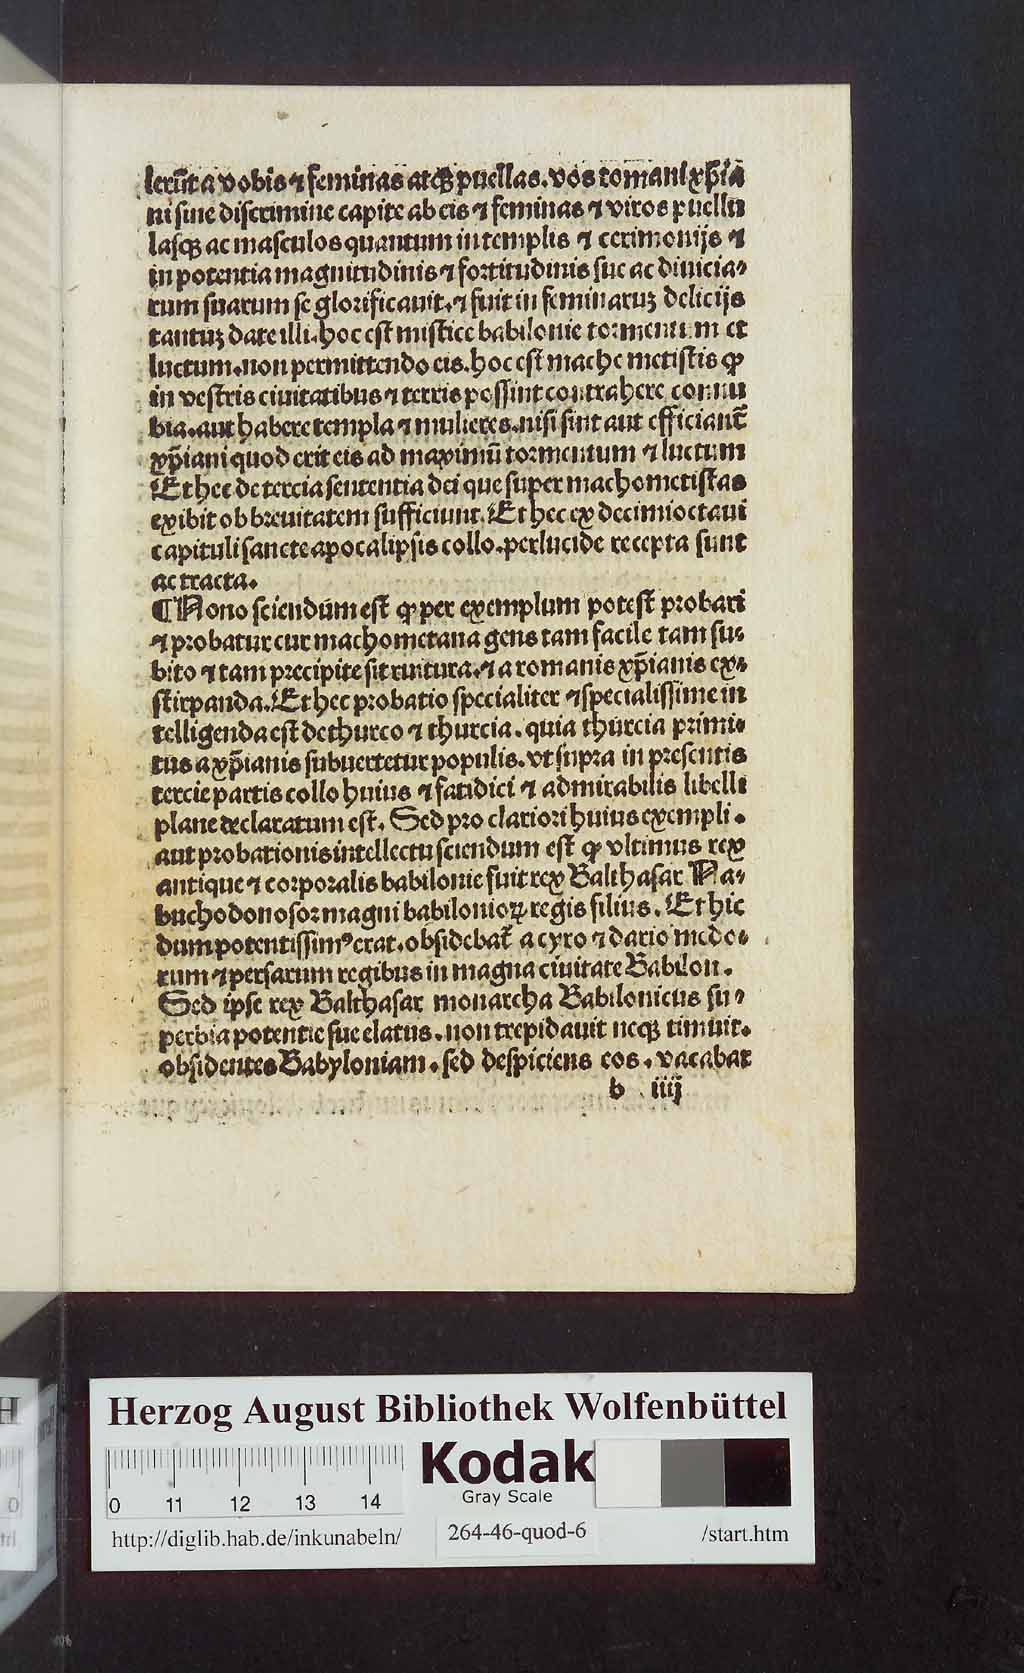 lerūt a vobis ⁊ feminas atqꝫ puellas. vos romani xp̄ia
ni sine discrimine capite ab eis ⁊ feminas ⁊ viros puellu
lasqꝫ ac masculos quantum in templis ⁊ cerimonijs ⁊
in potentia magnitudinis ⁊ fortitudinis sue ac diuicia⸗
rum suarum se glorificauit. ⁊ fuit in feminaruꝫ delicijs
tantuꝫ date illi. hoc est mistice babilonie tormentum et
luctum. non permittendo eis. hoc est machemetistis ꝙ
in vestris ciuitatibus ⁊ terris possint contrahere connu
bia. aut habere templa ⁊ mulieres. nisi sint aut efficiant̄
xp̄iani quod erit eis ad maximū tormentum ⁊ luctum
Et hec de tercia sententia dei que super machometistas
exibit ob breuitatem sufficiunt. Et hec ex decimioctaui
capituli sancte apocalipsis collo. perlucide recepta sunt
ac tracta.
¶ Nono sciendum est ꝙ per exemplum potest probari
⁊ probatur cur machometana gens tam facile tam su⸗
bito ⁊ tam precipite sit ruitura. ⁊ a romanis xp̄ianis ex⸗
stirpanda. Et hec probatio specialiter ⁊ specialissime in
telligenda est de thurco ⁊ thurcia. quia thurcia primi⸗
tus a xp̄ianis subuertetur populis. vt supra in presentis
tercie partis collo huius ⁊ fatidici ⁊ admirabilis libelli
plane declaratum est. Sed pro clariori huius exempli.
aut probationis intellectu sciendum est ꝙ vltimus rex
antique ⁊ corporalis babilonie fuit rex Balthasar Na⸗
buchodonosor magni babilonioꝝ regis filius. Et hic
dum potentissimꝰ erat. obsidebat̄ a cyro ⁊ dario medo⸗
rum ⁊ persarum regibus in magna ciuitate Babilon.
Sed ipse rex Balthasar monarcha Babilonicus su⸗
perbia potentie sue elatus. non trepidauit neqꝫ timuit.
obsidentes Babyloniam. sed despiciens eos. vacabat
b iiij
Herzog August Bibliothek Wolfenbüttel
Kodak
Gray Scale
0 11 12 13 14
http://diglib.hab.de/inkunabeln/ 264-46-quod-6 /start.htm